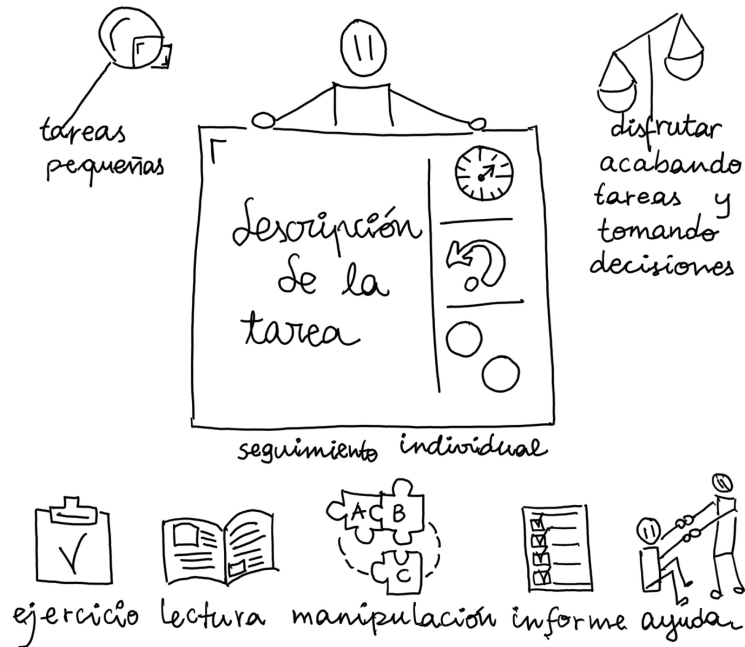 tareas
pequeñas
disfrutar
acabando
tareas y
tomando
decisiones
descripción
de la
tarea
seguimiento individual
A B
C
ejercicio lectura manipulación informe ayudar